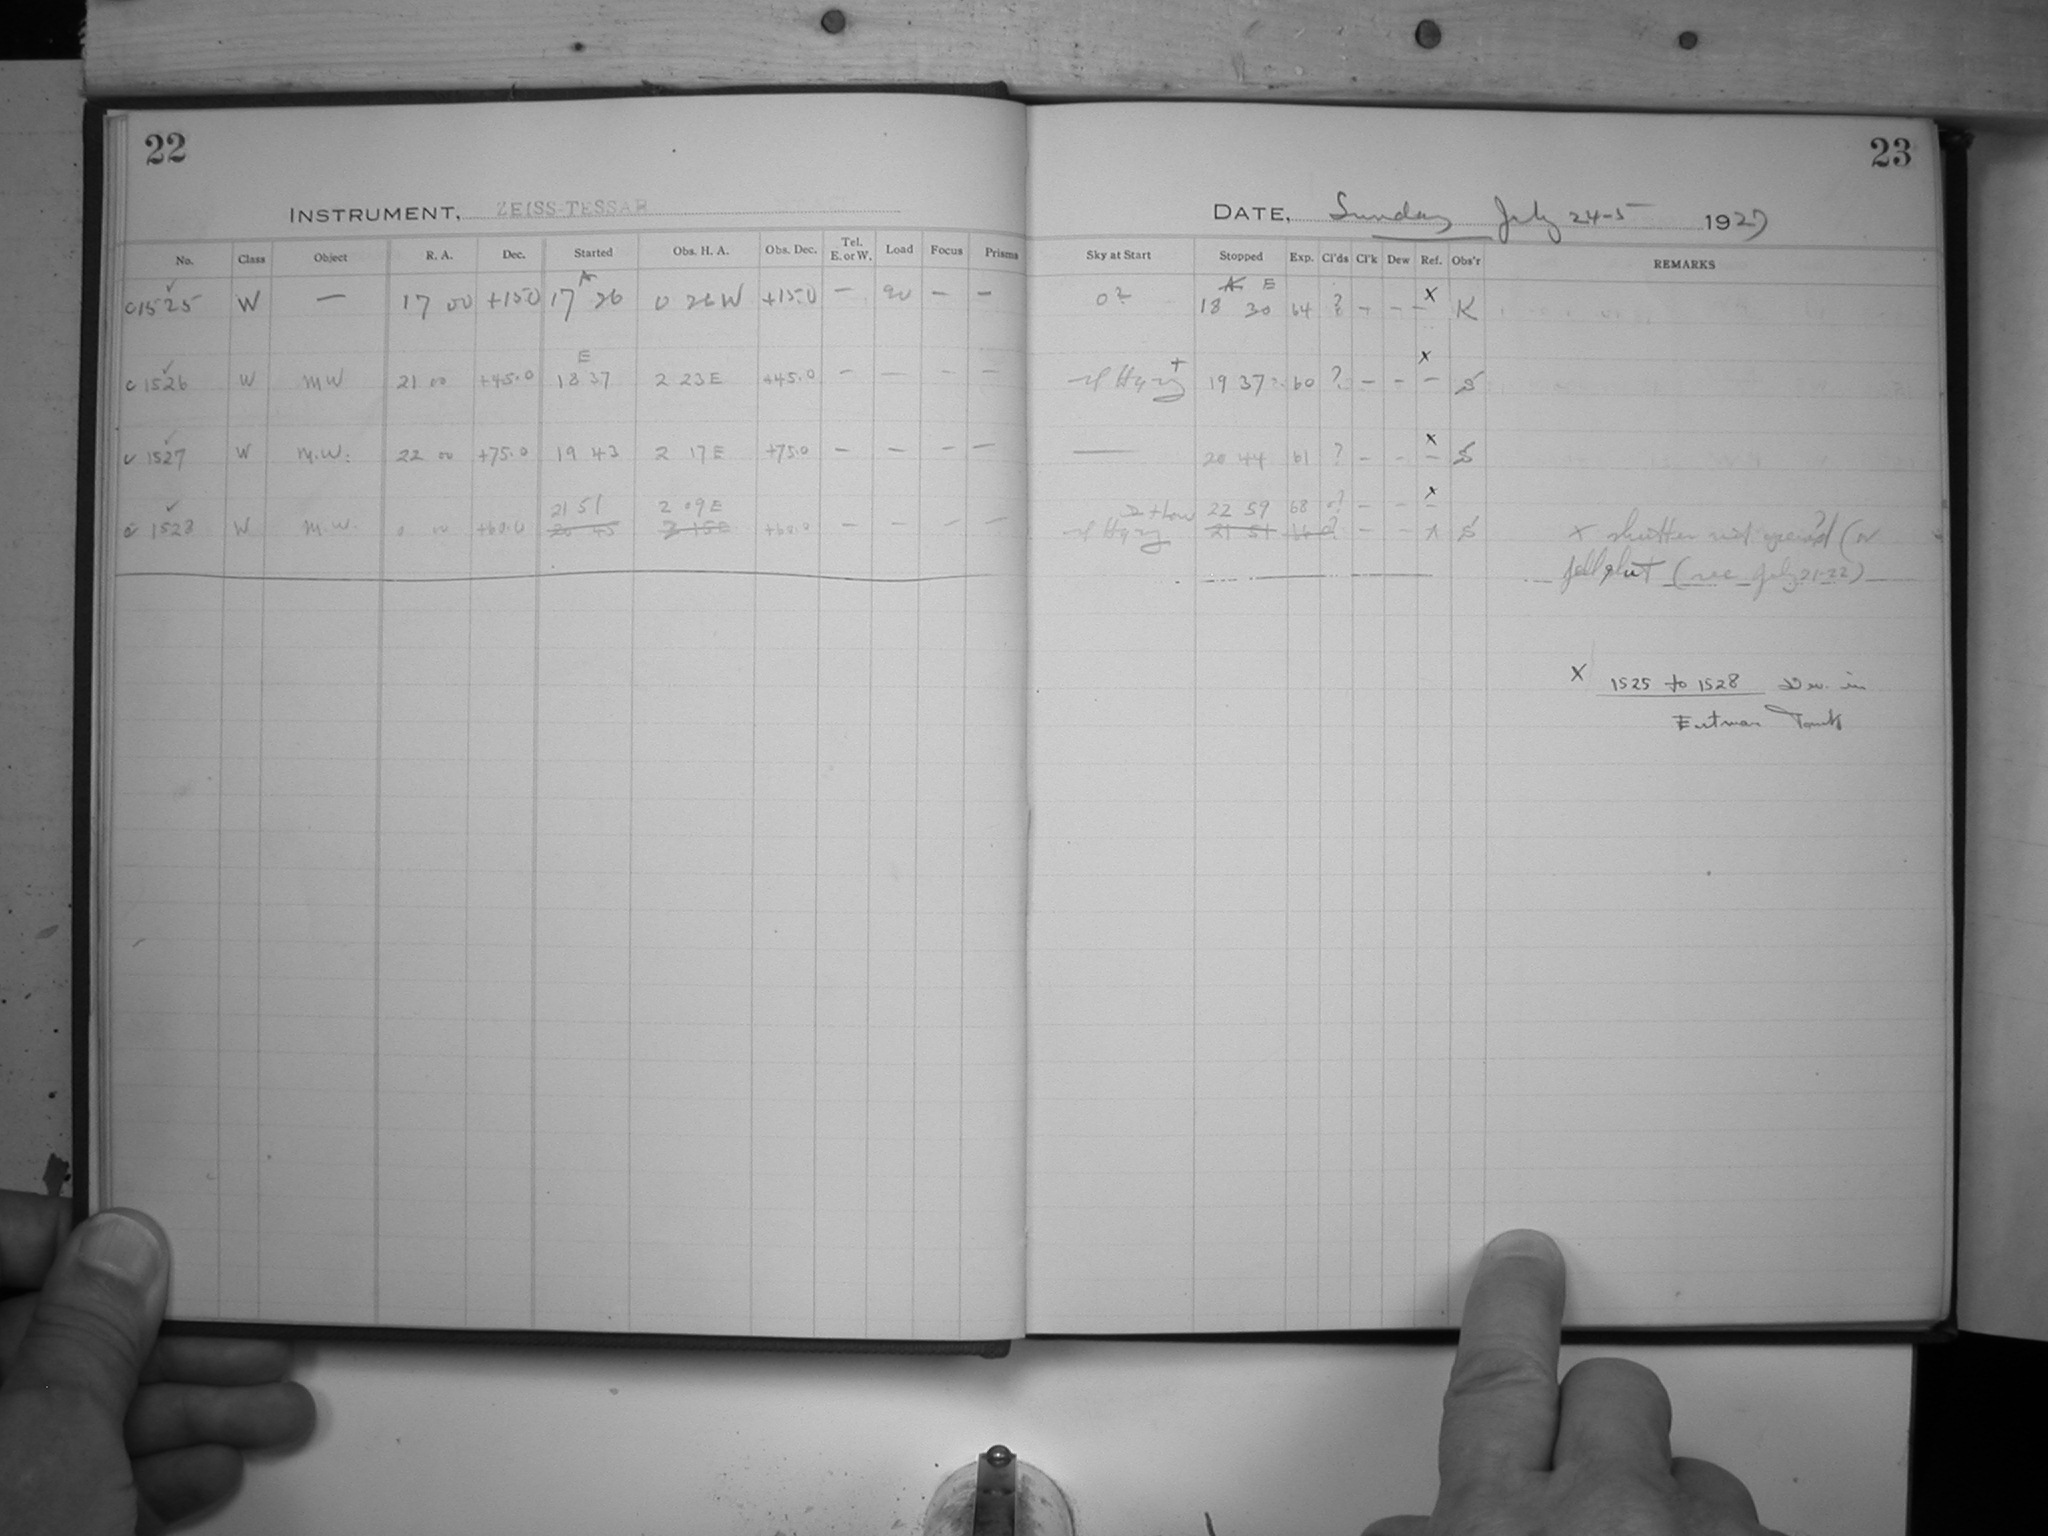 22
INSTRUMENT, ZEISS-TESSAR
No. Class Object R. A. Dec. Started Obs. H. A. Obs. Dec. Tel. E. or W. Load Focus Prisms
A
c1525 W — 17 00 +15.0 17 26 0 26 W +15.0 — 90 — —
E
c 1526 W MW 21 00 +45.0 18 37 2 23 E +45.0 — — — —
c 1527 W M.W. 22 00 +75.0 19 43 2 17 E +75.0 — — — —
21 51 2 09 E
c 1528 W M.W. 0 00 +60.0 20 45 2 15 E +60.0 — — — —
23
DATE, Sunday July 24-5 1927
Sky at Start Stopped Exp. Cl'ds Cl'k Dew Ref. Obs'r REMARKS
A E
0? 18 30 64 ? — — — x K
+ x
Hazy 19 37 60 ? — — — S
x
— 20 44 61 ? — — — S
x
22 59 68 0? — — —
Hazy 21 51 0? — — x S x shutter not opened (or
fell shut (see July 21-22)
x 1525 to 1528 Dev. in
Eastman Tank